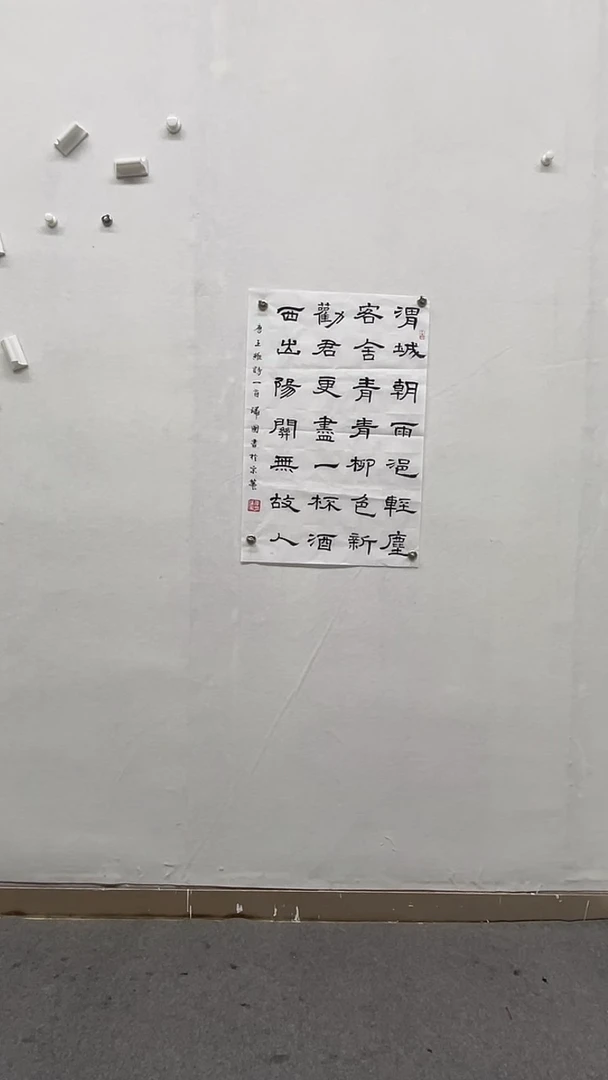 渭城朝雨浥輕塵
客舍青青柳色新
勸君更盡一杯酒
西出陽關無故人
唐王維詩一首 瑞國書於京華